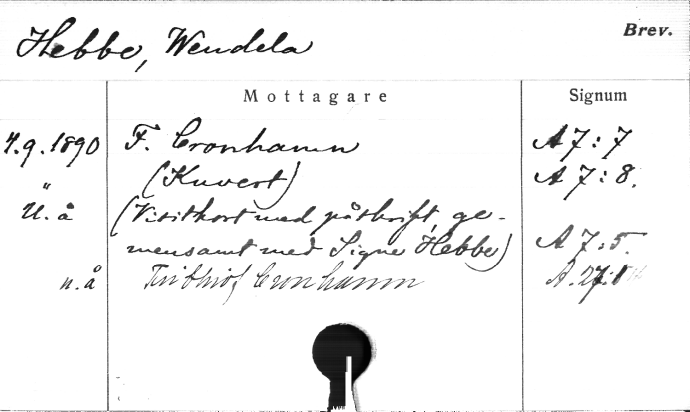 Hebbe, Wendela
Brev.
Mottagare
Signum
7.9.1890 F. Cronhamn A 7:7
" (Kuvert) A 7:8.
U.å (Visitkort med påskrift, ge-
mensamt med Signe Hebbe) A 7:5.
u.å Frithiof Cronhamn A.27:1